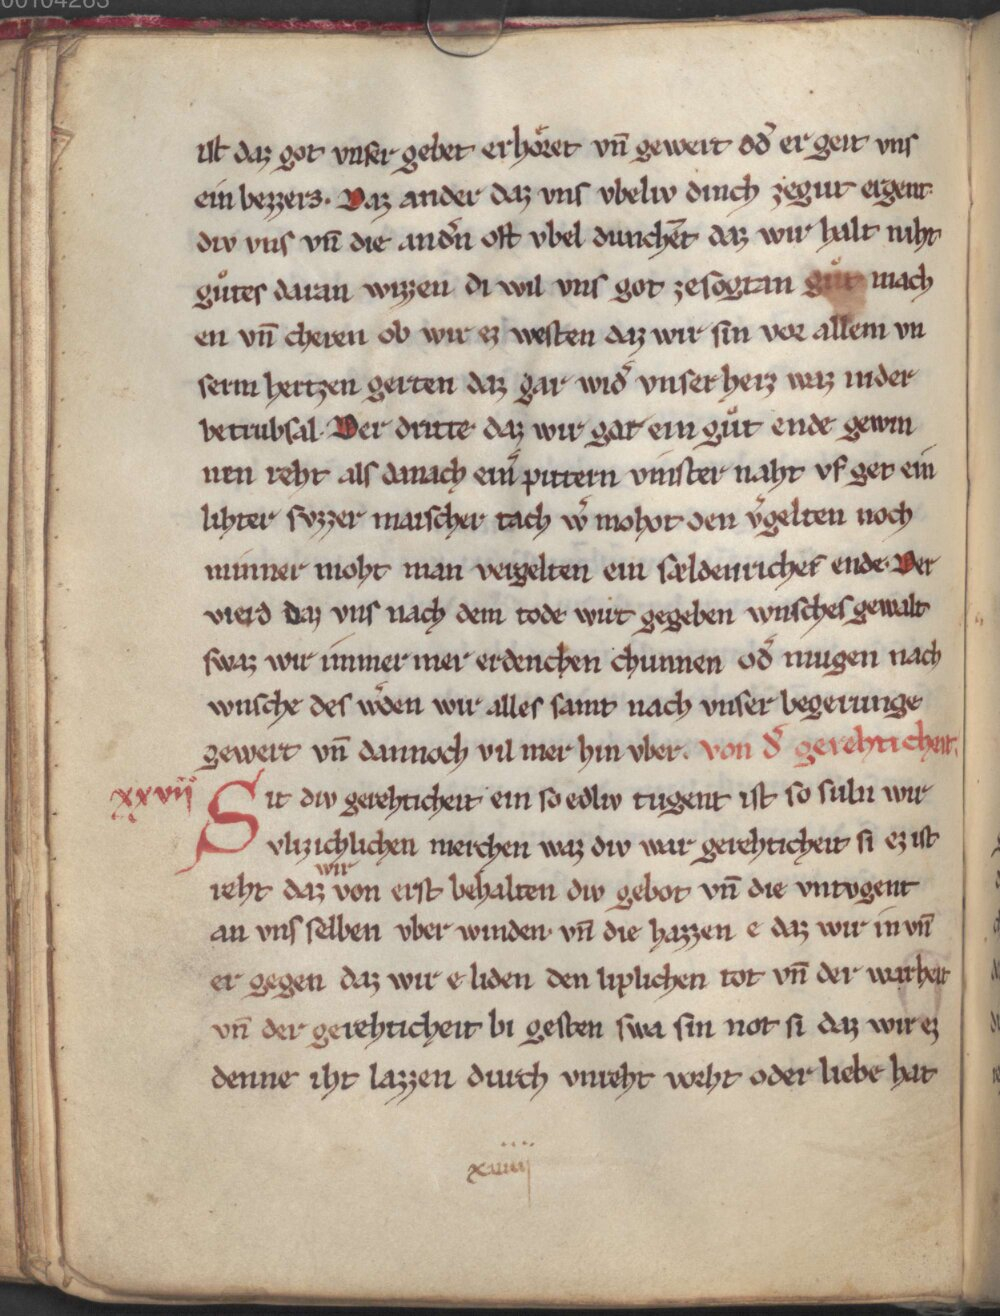 00104263
ist daz got vnser gebet erhoͤret vn̄ gewert od̾ er geit vns
ein bezzers. Daz ander daz vns vbeliv dinch zegut ergent
div vns vn̄ die and̾n oft vbel dunchēt daz wir halt niht
guͦtes daran wizzen di wil vns got ze sogtan guͦt mach
en vn̄ cheren ob wir ez westen daz wir sin vor allem vn
serm hertzen gerten daz gar wid̾ vnser herz waz in der
betrubsal. Der dritte daz wir gar ein guͦt ende gewin
nen reht als danach ein̾ pittern vinster naht vf get ein
lihter svzzer maischer tach w̾ moht den v̾gelten noch
minner moht man vergelten ein sældenriches ende. Der
vierd daz vns nach dem tode wirt gegeben wnsches gewalt
swaz wir immer mer erdenchen chunnen od̾ mugen nach
wnsche des w̾den wir alles samt nach vnser begerunge
gewert vn̄ dannoch vil mer hin vber. von d̾ gerehticheit.
xxvij Sit div gerehticheit ein so edliv tugent ist so suln wir
vlizichlichen merchen waz div war gerehticheit si ez ist
wir
reht daz von erst behalten div gebot vn̄ die vntvgent
an vns selben vber winden. vn̄ die hazzen e daz wir in vn̄
er gegen daz wir e liden den liplichen tot vn̄ der warheit
vn̄ der gerehticheit bi gesten swa sin not si daz wir ez
denne iht lazzen durch vnreht vorht oder liebe hat
xiiiij